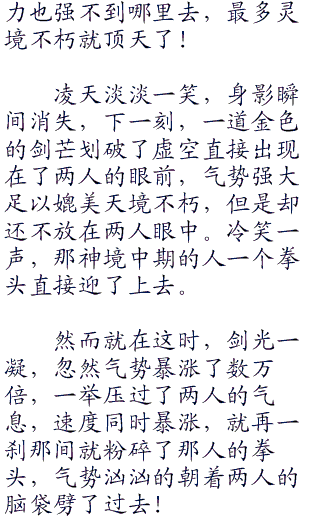 力也强不到哪里去，最多灵
境不朽就顶天了！
凌天淡淡一笑，身影瞬
间消失，下一刻，一道金色
的剑芒划破了虚空直接出现
在了两人的眼前，气势强大
足以媲美天境不朽，但是却
还不放在两人眼中。冷笑一
声，那神境中期的人一个拳
头直接迎了上去。
然而就在这时，剑光一
凝，忽然气势暴涨了数万
倍，一举压过了两人的气
息，速度同时暴涨，就再一
刹那间就粉碎了那人的拳
头，气势汹汹的朝着两人的
脑袋劈了过去！